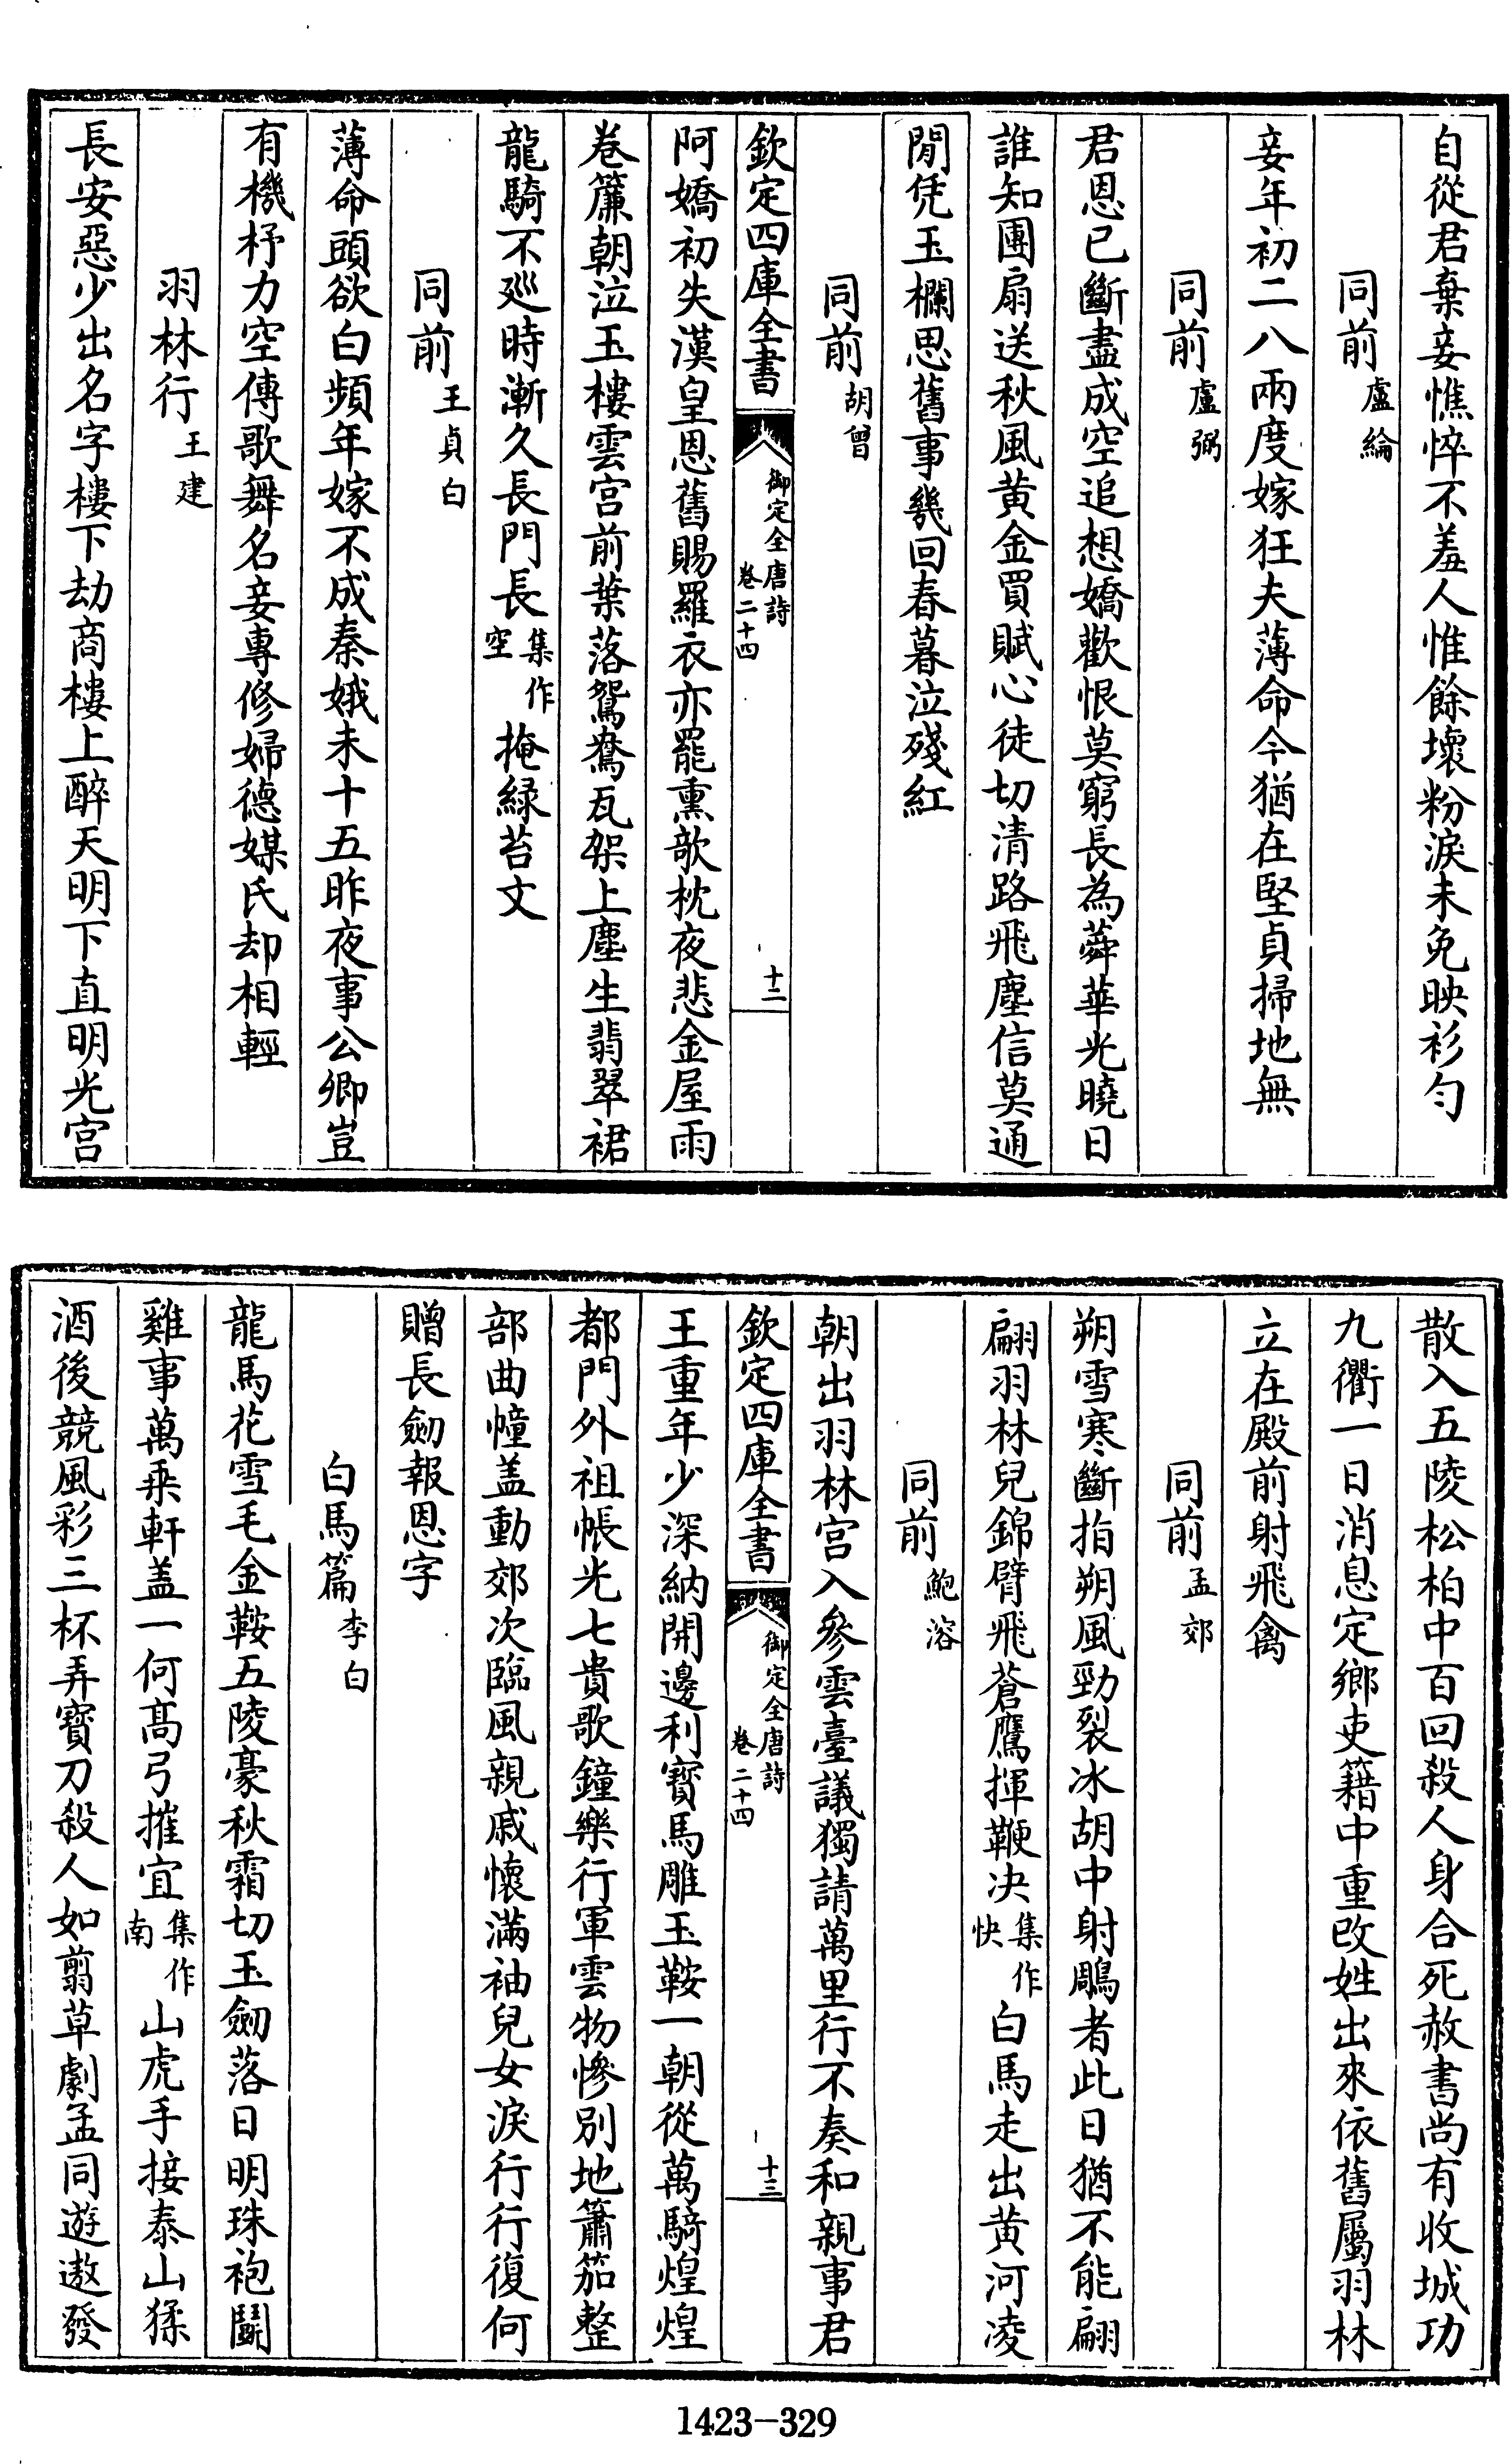 自從君棄妾憔悴不羞人惟餘壞粉淚未免映衫勻
同前盧綸
妾年初二八兩度嫁狂夫薄命今猶在堅貞掃地無
同前盧弼
君恩已斷盡成空追想嬌歡恨莫窮長為蕣華光曉日
誰知團扇送秋風黃金買賦心徒切清路飛塵信莫通
閒凭玉欄思舊事幾回春暮泣殘紅
同前胡曾
欽定四庫全書 御定全唐詩 卷二十四 十二
阿嬌初失漢皇恩舊賜羅衣亦罷熏欹枕夜悲金屋雨
卷簾朝泣玉樓雲宮前葉落鴛鴦瓦架上塵生翡翠裙
龍騎不巡時漸久長門長集作空掩緑苔文
同前王貞白
薄命頭欲白頻年嫁不成秦娥未十五昨夜事公卿豈
有機杼力空傳歌舞名妾專修婦德媒氏却相輕
羽林行王建
長安惡少出名字樓下劫商樓上醉天明下直明光宮
散入五陵松柏中百回殺人身合死赦書尚有收城功
九衢一日消息定鄉吏籍中重改姓出來依舊屬羽林
立在殿前射飛禽
同前孟郊
朔雪寒斷指朔風勁裂冰胡中射鵰者此日猶不能翩
翩羽林兒錦臂飛蒼鷹揮鞭決集作快白馬走出黃河凌
同前鮑溶
朝出羽林宮入參雲臺議獨請萬里行不奏和親事君
欽定四庫全書 御定全唐詩 卷二十四 十三
王重年少深納開邊利寶馬雕玉鞍一朝從萬騎煌煌
都門外祖帳光七貴歌鐘樂行軍雲物慘別地簫笳整
部曲幢盖動郊次臨風親戚懷滿袖兒女淚行行復何
贈長劒報恩字
白馬篇李白
龍馬花雪毛金鞍五陵豪秋霜切玉劒落日明珠袍鬭
雞事萬乘軒盖一何高弓摧宜集作南山虎手接泰山猱
酒後競風彩三杯弄寶刀殺人如翦草劇孟同遊遨發
1423-329